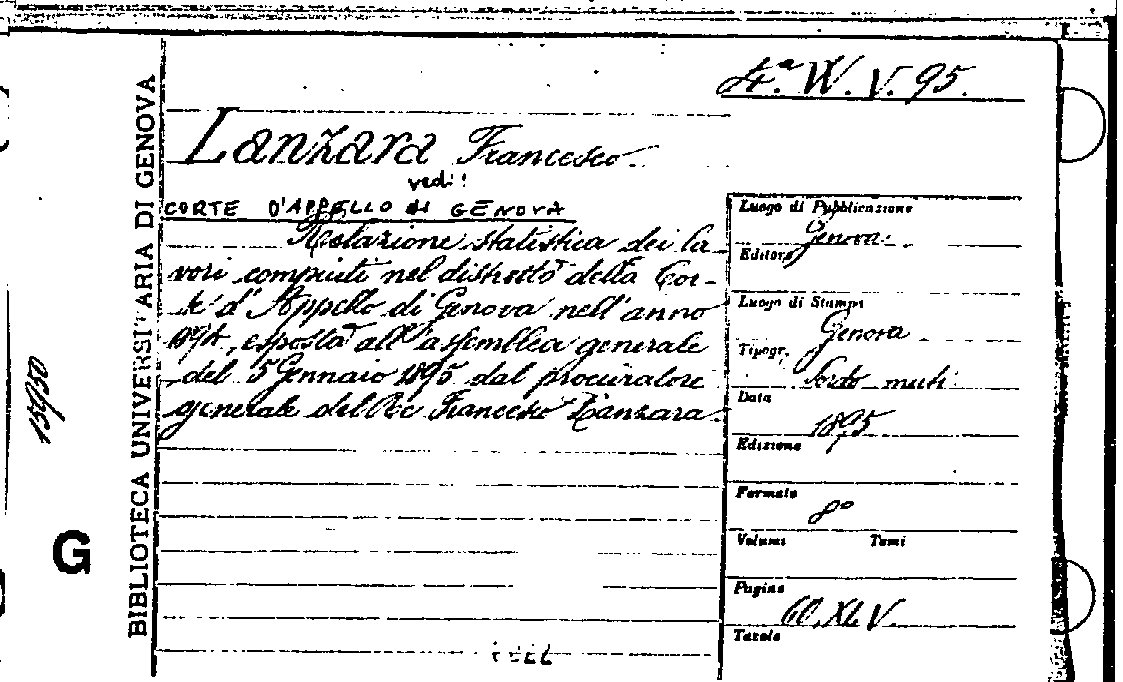 4.ª W. V. 95.
Lanzara Francesco.
vedi!
CORTE D'APPELLO di GENOVA
Relazione statistica dei la
vori compiuti nel distretto della Cor-
te d'Appello di Genova nell'anno
1894, esposta all'assemblea generale
del 5 Gennaio 1895 dal procuratore
generale del Re Francesco Lanzara.
Luogo di Pubblicazione
Genova.
Editore
Luogo di Stampa
Genova
Tipogr.
Sordo muti
Data
1895
Edizione
Formato
8º
Volumi Tomi
Pagine
60, XLV
Tavole
BIBLIOTECA UNIVERSITARIA DI GENOVA
15950
G